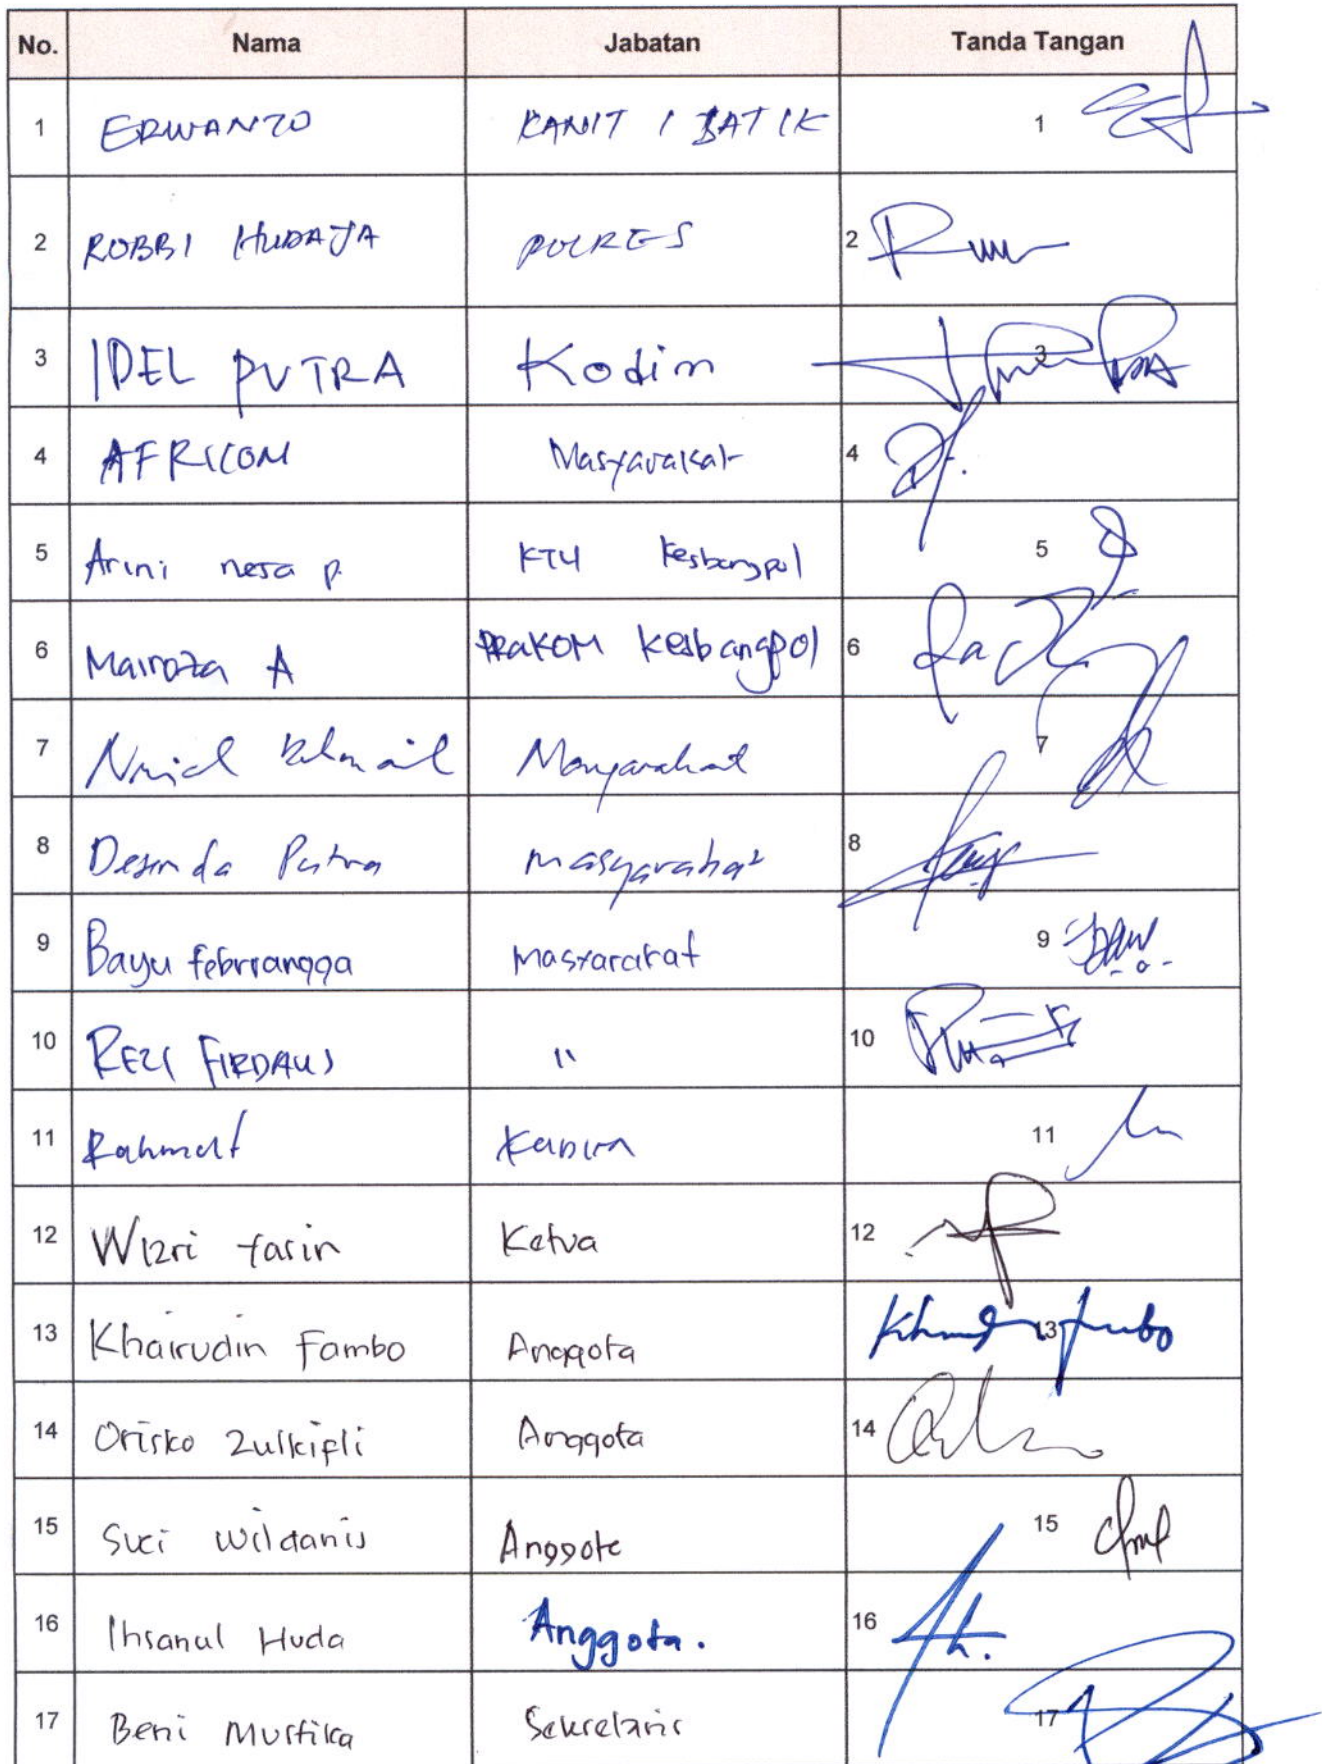 No. Nama Jabatan Tanda Tangan
1 ERWANTO KANIT I SATIK 1
2 ROBBI HUDAJA POLRES 2
3 IDEL PUTRA Kodim 3
4 AFRICON Masyarakat 4
5 Arini nesa p. KTU Kesbangpol 5
6 Mairoza A PRAKOM Kesbangpol 6
7 Masyarakat 7
8 Desinda Putra Masyarakat 8
9 Bayu febriangga Masyarakat 9
10 REZI FIRDAUS " 10
11 Rahmat 11
12 Wizri Yasin Ketua 12
13 Khairudin Fambo Anggota 13
14 Orisko Zulkipli Anggota 14
15 Suci Wildanis Anggota 15
16 Ihsanul Huda Anggota. 16
17 Beni Mustika Sekretaris 17